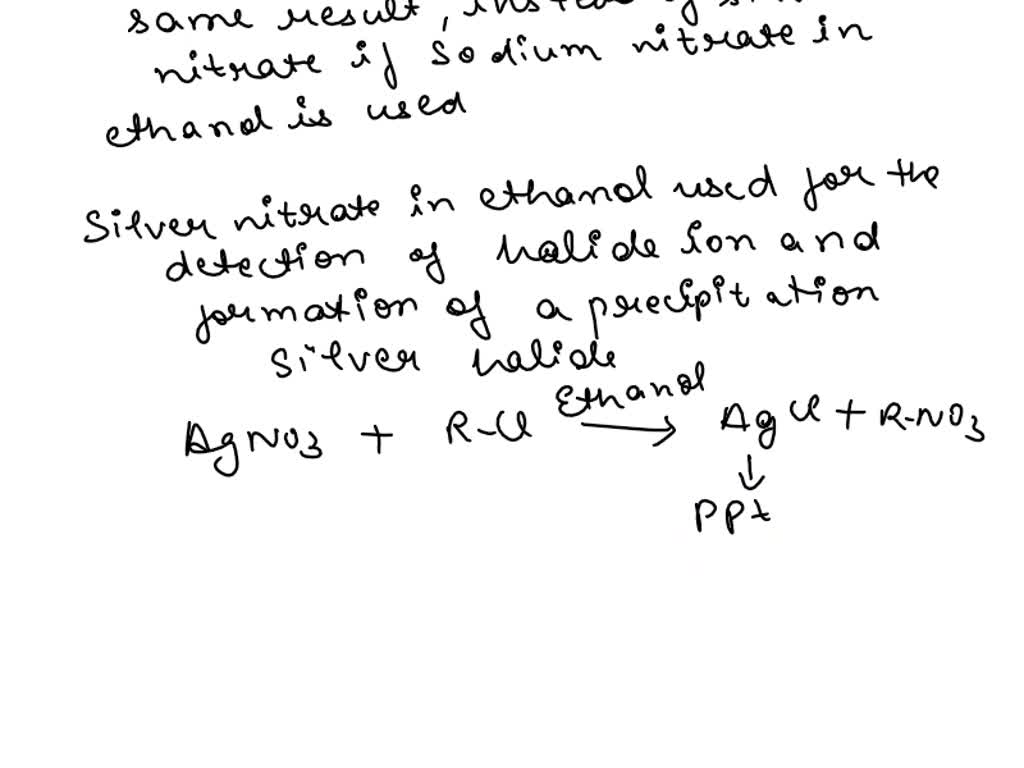 same result, instead of
nitrate if sodium nitrate in
ethanol is used
Silver nitrate in ethanol used for the
detection of halide ion and
formation of a precipitation
silver halide
AgNO3 + R-Cl Ethanol → AgCl + R-NO3
↓
ppt